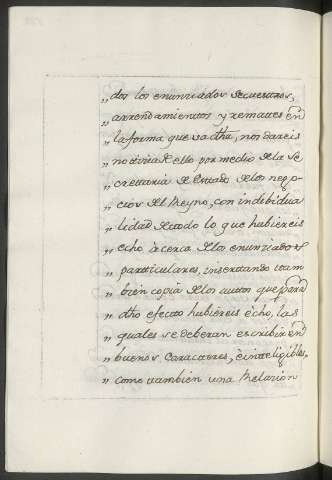 „ dos los enunziados Secuestros,
„ arrendamientos y remattes en
„ la forma que va dha, nos dareis
„ notizia de ello por medio de la Se
„ crettaria de Estado de los nego
„ cios del Reyno, con indibidua
„ lidad de todo lo que hubiereis
„ echo àcerca de los enunziados
„ partticulares, inserttando ttam
„ bien copia de los auttos que para
„ dho efecto hubiereis echo, las
„ quales se deberan escribir en
„ buenos Caracttores, è intteligibles,
„ como ttambien una Relazion